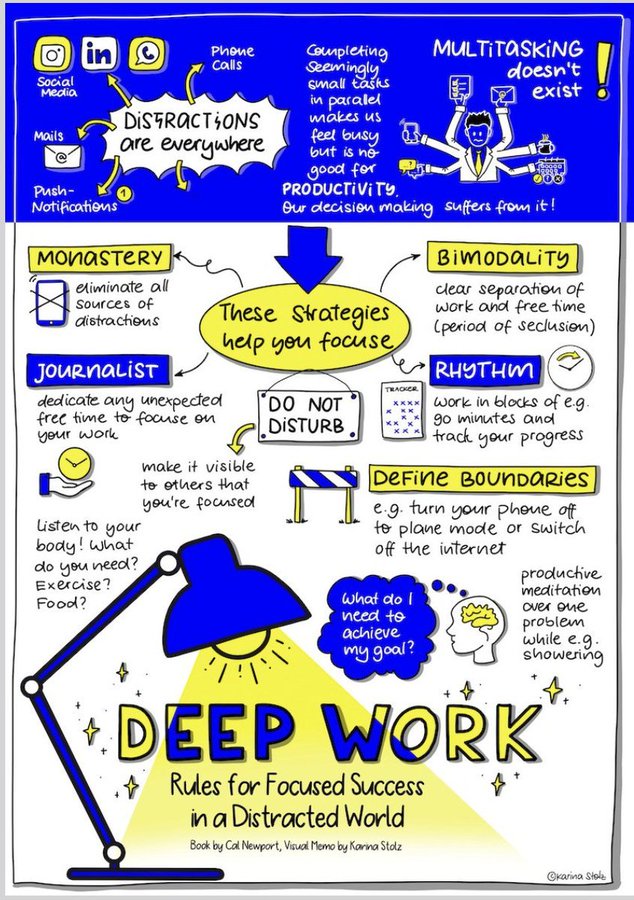 Social
Media
Phone
Calls
DISTRACTIONS
are everywhere
Mails
Push-
Notifications
1
Completing
seemingly
small tasks
in parallel
makes us
feel busy
but is no
good for
PRODUCTIVITY.
Our decision making suffers from it!
MULTITASKING
doesn't
exist
!
These Strategies
help you focuse
MONASTERY
eliminate all
sources of
distractions
BIMODALITY
clear separation of
work and free time
(period of seclusion)
JOURNALIST
dedicate any unexpected
free time to focuse on
your work
RHYTHM
TRACKER
work in blocks of e.g.
90 minutes and
track your progress
DO NOT
DISTURB
make it visible
to others that
you're focused
DEFINE BOUNDARIES
e.g. turn your phone off
to plane mode or switch
off the internet
Listen to your
body! What
do you need?
Exercise?
Food?
What do I
need to
achieve
my goal?
productive
meditation
over one
problem
while e.g.
showering
DEEP WORK
Rules for Focused Success
in a Distracted World
Book by Cal Newport, Visual Memo by Karina Stolz
©Karina Stolz